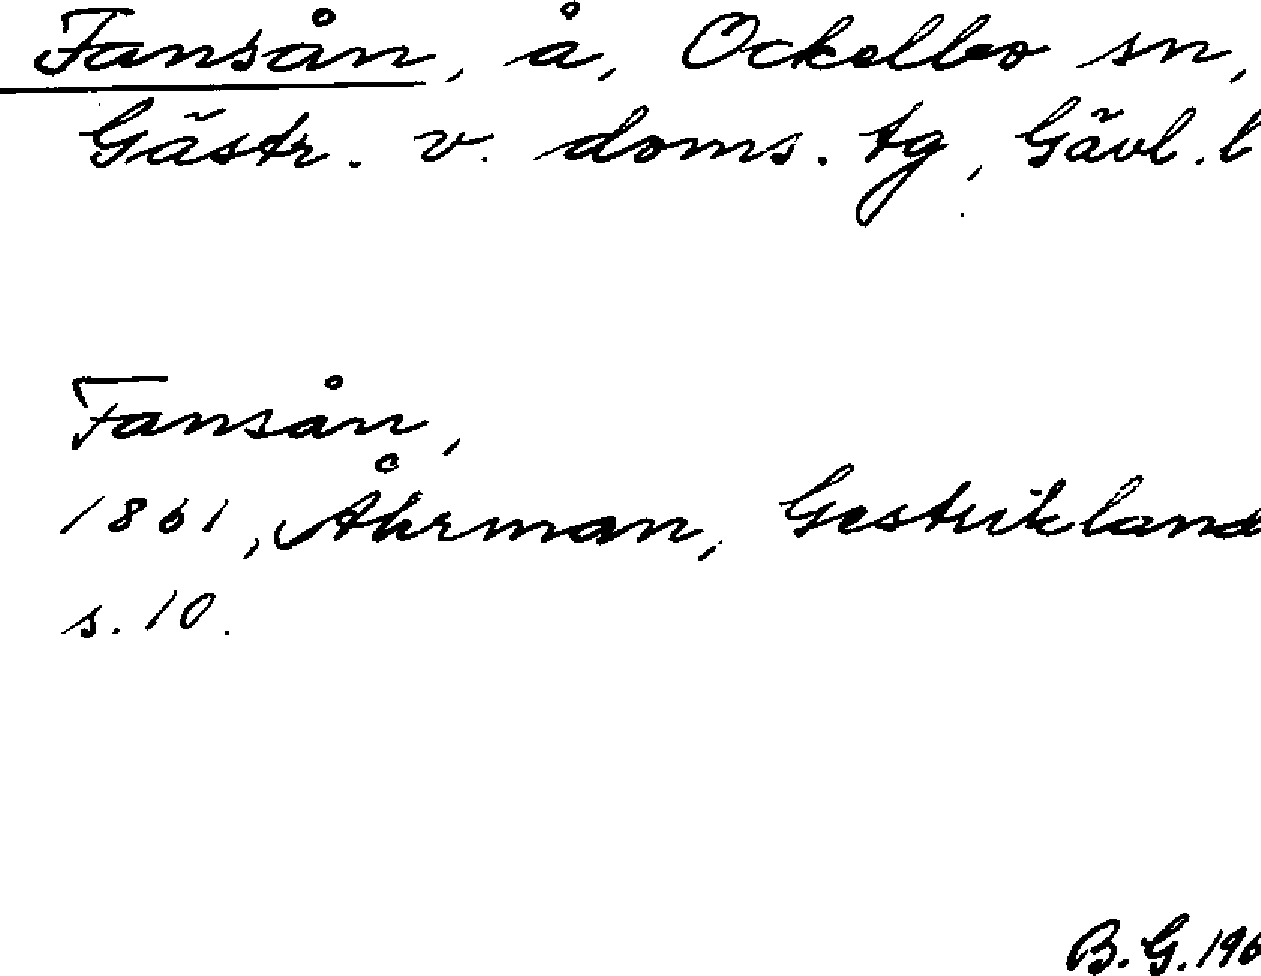 Fansån, å, Ockelbo sn,
Gästr. v. doms. tg, Gävl. l
Fansån,
1861, Åhrman, Gestrikland
s. 10.
B. G. 196